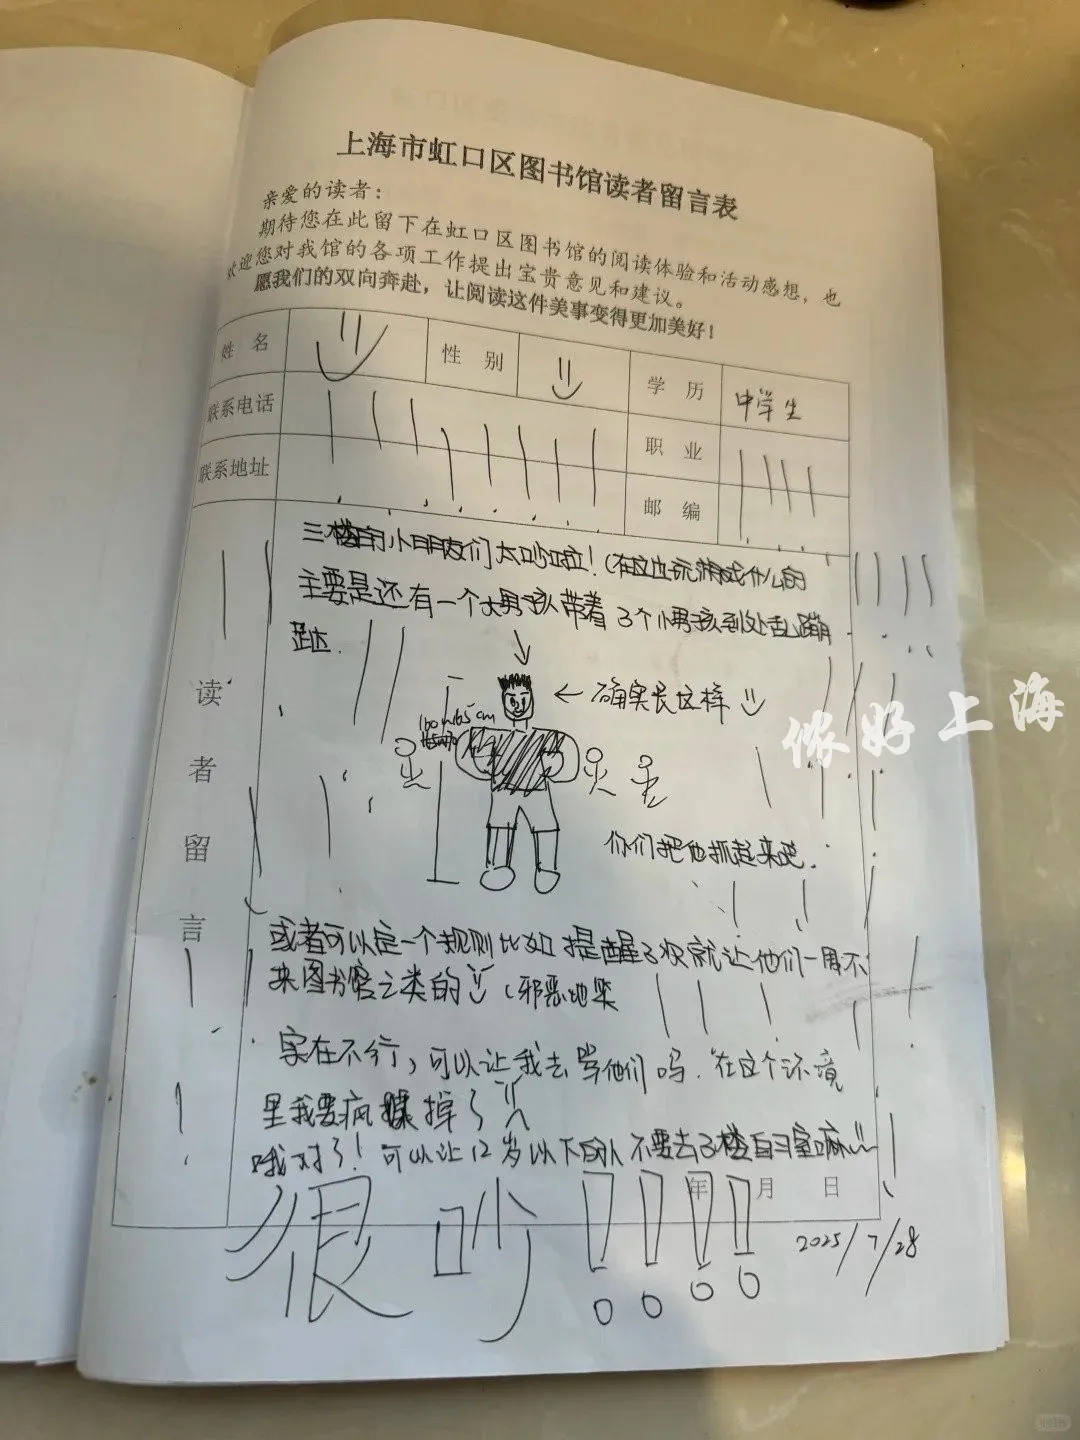 上海市虹口区图书馆读者留言表
亲爱的读者：
期待您在此留下在虹口区图书馆的阅读体验和活动感想，也
欢迎您对我馆的各项工作提出宝贵意见和建议。
愿我们的双向奔赴，让阅读这件美事变得更加美好！
姓 名
性 别
学 历
中学生
联系电话
职 业
联系地址
邮 编
读者留言
三楼的小朋友们太吵啦！（在这边玩游戏什么的
主要是还有一个大男孩带着3个小男孩到处乱蹦
跶.
← 确实长这样
160~165cm
你们把他抓起来吧.
或者可以定一个规则比如提醒3次就让他们一周不
来图书馆之类的（邪恶地笑
实在不行，可以让我去骂他们吗.在这个环境
里我要疯掉了
哦对了！可以让12岁以下的人不要去3楼自习室嘛
年 月 日
很吵！！！！
2025/7/28
侬好上海